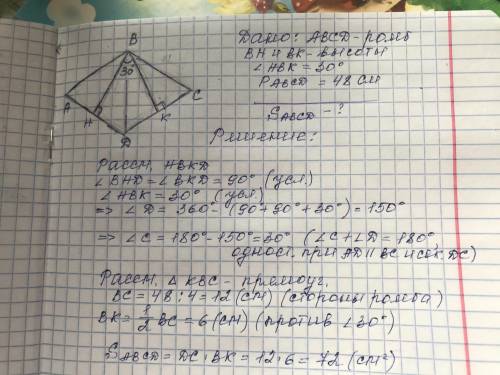 B
30
A
C
H
K
D
Дано: ABCD - ромб
BH и BK - высоты
∠HBK = 30°
P ABCD = 48 см
S ABCD - ?
Решение:
Рассм. HBKD
∠BHD = ∠BKD = 90° (усл.)
∠HBK = 30° (усл)
=> ∠D = 360 - (90 + 90 + 30°) = 150°
=> ∠C = 180° - 150° = 30° (∠C + ∠D = 180°,
одност. при AD || BC и сек. DC)
Рассм. △ KBC - прямоуг.
BC = 48 : 4 = 12 (см) (стороны ромба)
BK = 1/2 BC = 6 (см) (против ∠30°)
S ABCD = DC · BK = 12 · 6 = 72 (см²)